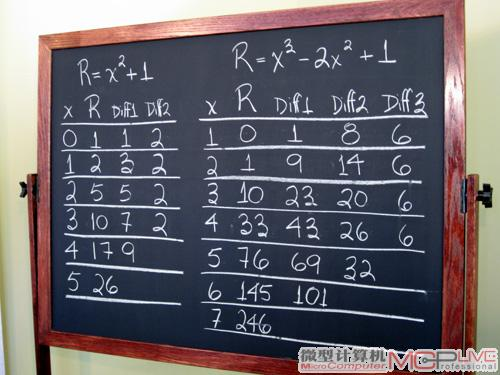 R = x² + 1
x R Diff1 Diff2
0 1 1 2
1 2 3 2
2 5 5 2
3 10 7 2
4 17 9
5 26
R = x³ - 2x² + 1
x R Diff1 Diff2 Diff3
1 0 1 8 6
2 1 9 14 6
3 10 23 20 6
4 33 43 26 6
5 76 69 32
6 145 101
7 246
微型计算机 MCPLIVE
MicroComputer. Professional